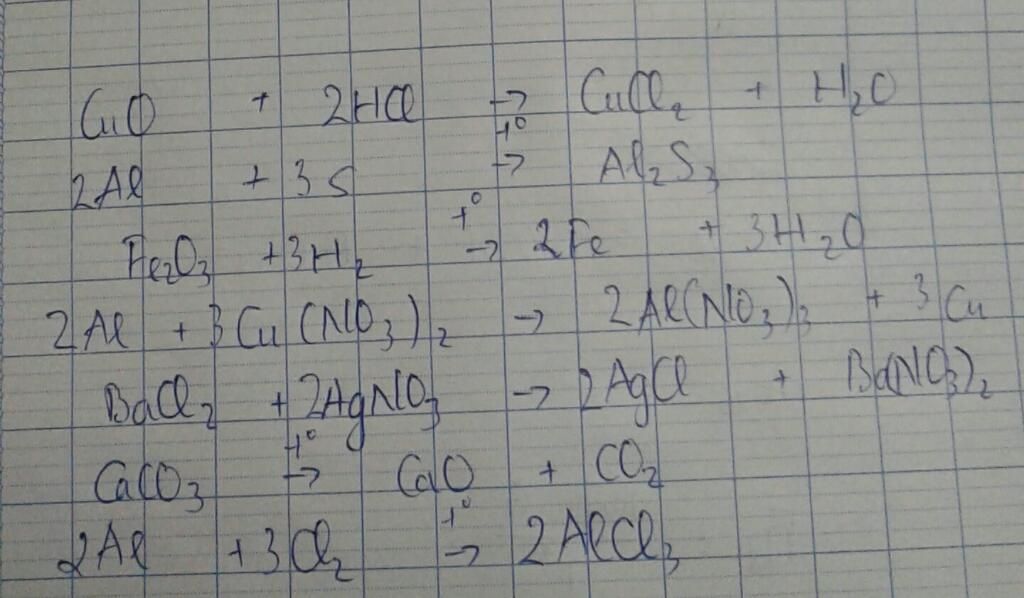 CuO + 2HCl → CuCl₂ + H₂O
2Al + 3S t°→ Al₂S₃
Fe₂O₃ + 3H₂ t°→ 2Fe + 3H₂O
2Al + 3Cu(NO₃)₂ → 2Al(NO₃)₃ + 3Cu
BaCl₂ + 2AgNO₃ → 2AgCl + Ba(NO₃)₂
CaCO₃ t°→ CaO + CO₂
2Al + 3Cl₂ t°→ 2AlCl₃